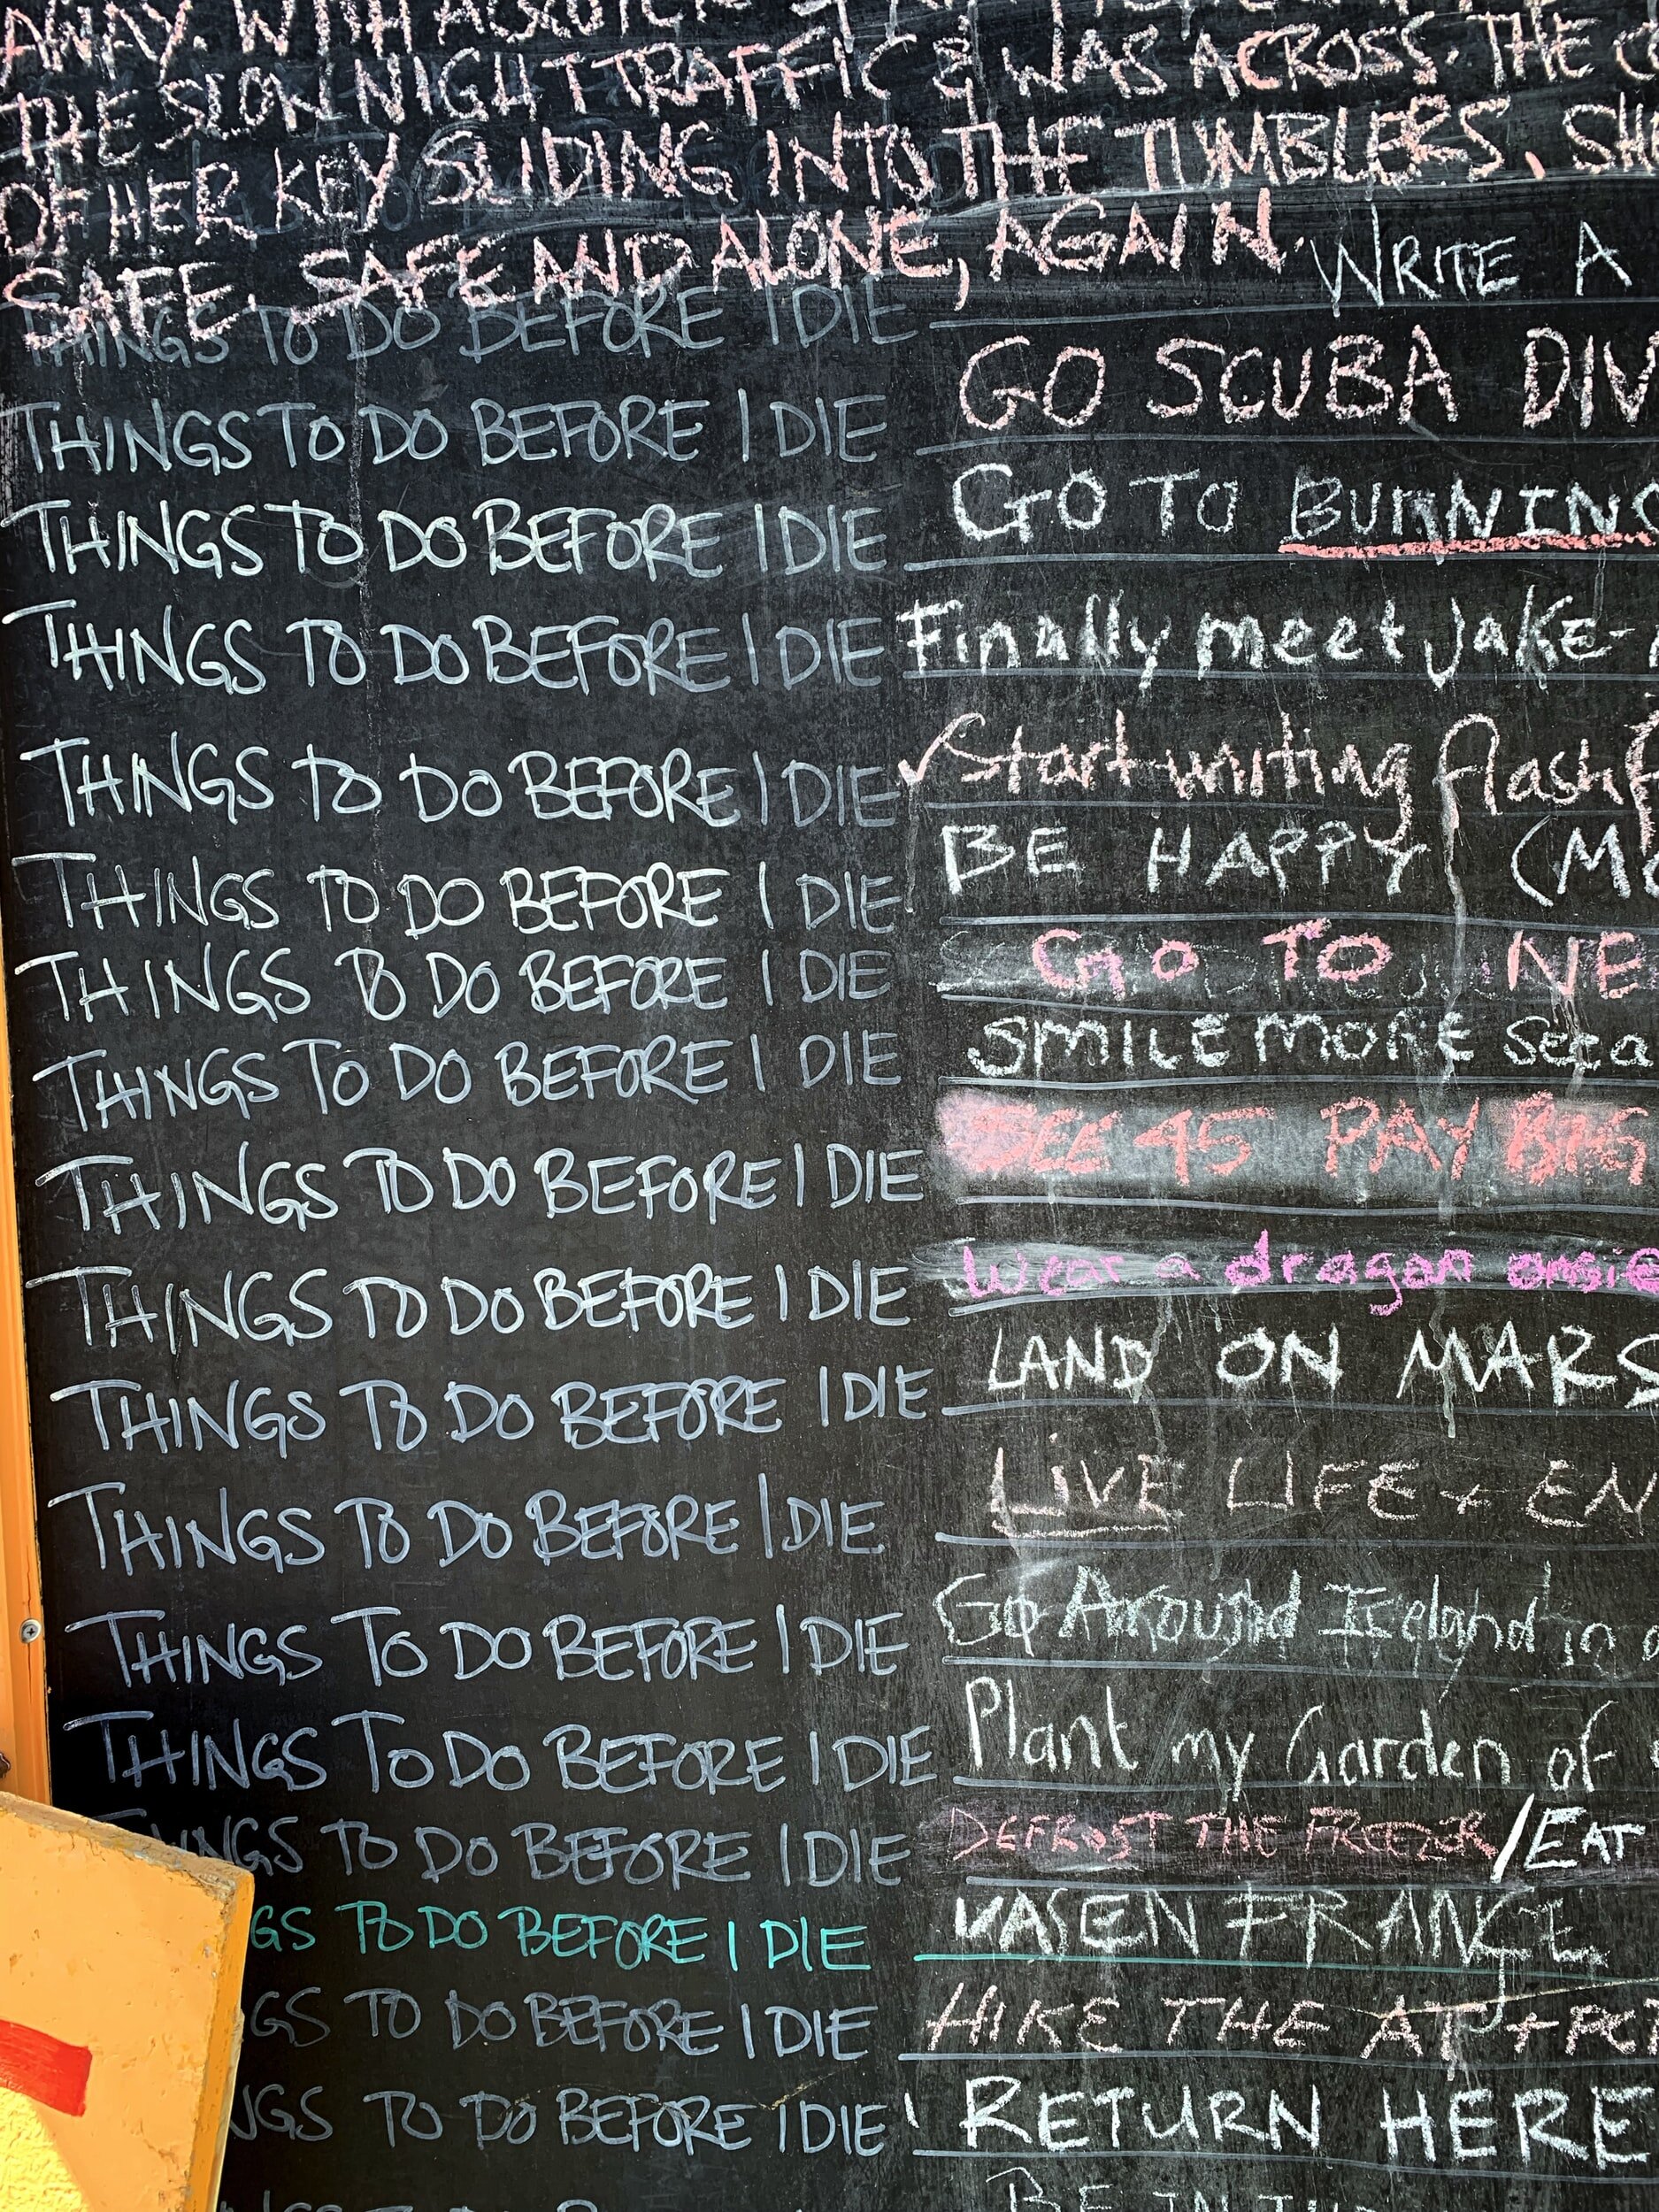 AWAY. WITH A
THE SLOW NIGHT TRAFFIC & WAS ACROSS. THE
OF HER KEY SLIDING INTO THE TUMBLERS. SH
SAFE. SAFE AND ALONE, AGAIN.
THINGS TO DO BEFORE I DIE WRITE A
THINGS TO DO BEFORE I DIE GO SCUBA DIV
THINGS TO DO BEFORE I DIE GO TO BURNING
THINGS TO DO BEFORE I DIE Finally meet Jake-
THINGS TO DO BEFORE I DIE ✓ Start writing flash f
THINGS TO DO BEFORE I DIE BE HAPPY (MO
THINGS TO DO BEFORE I DIE GO TO NE
THINGS TO DO BEFORE I DIE SMILE MORE
THINGS TO DO BEFORE I DIE SEE 45 PAY BIG
THINGS TO DO BEFORE I DIE Wear a dragon onsie
THINGS TO DO BEFORE I DIE LAND ON MARS
THINGS TO DO BEFORE I DIE LIVE LIFE + EN
THINGS TO DO BEFORE I DIE Go Around Iceland in a
THINGS TO DO BEFORE I DIE Plant my Garden of
NGS TO DO BEFORE I DIE DEFROST THE FREEZER /EAT
GS TO DO BEFORE I DIE VASEN FRANCE
GS TO DO BEFORE I DIE HIKE THE AT + PCT
NGS TO DO BEFORE I DIE RETURN HERE
BE IN